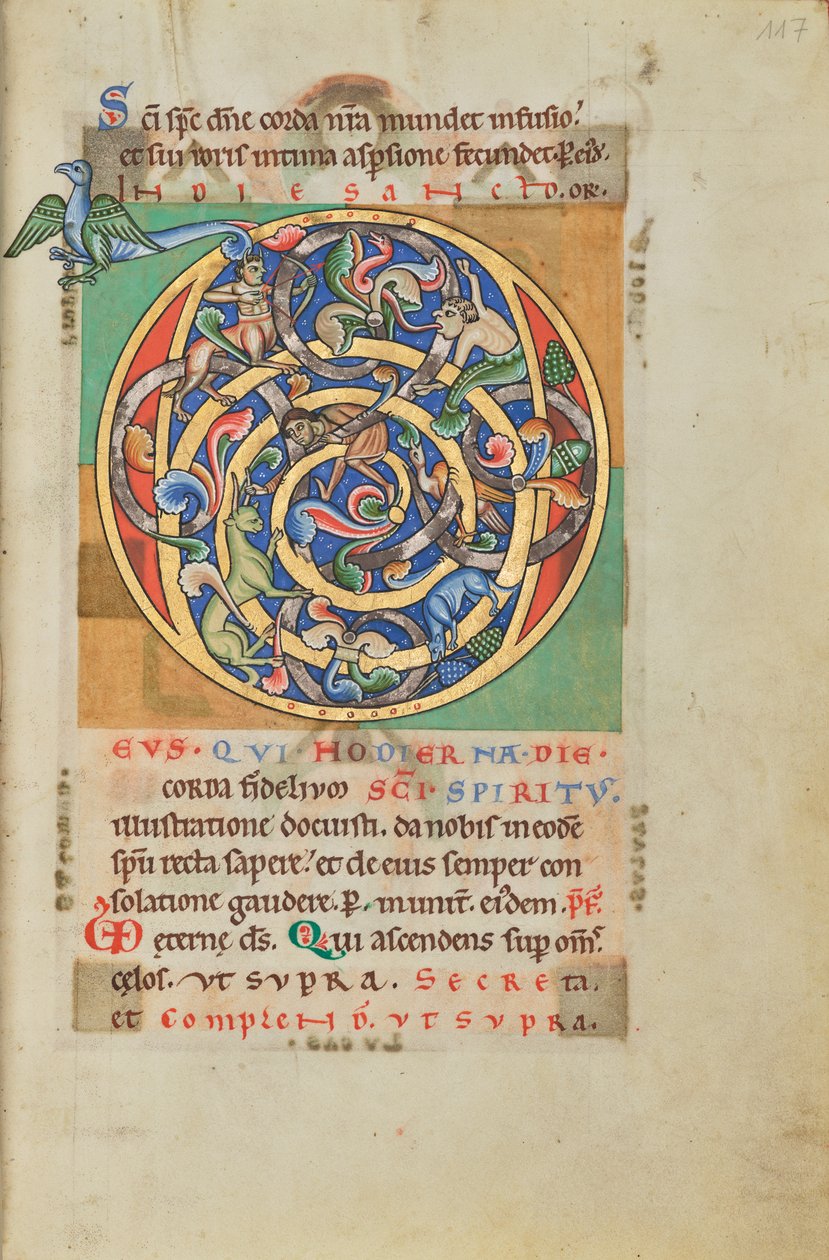 117
Sc̄i sp̄c dn̄e corda nr̄a mundet infusio.
et sui roris intima asp̱sione fecundet. P̱. eiꝰd.
IN DIE SANCTO. OR.
EVS. QVI HODIERNA DIE.
CORDA fidelium SC̄I SPIRITV.
illustratione docuisti. da nobis in eodē
sp̄u recta sapere. et de eius semper con
solatione gaudere. P̱. in unit̄. eiꝰdem. p̄f.
ęternę ds̄. Qui ascendens sup̱ om̄s.
cęlos. VT SVPRA. SECRETA.
et COMPLEND̄. VT SVPRA.